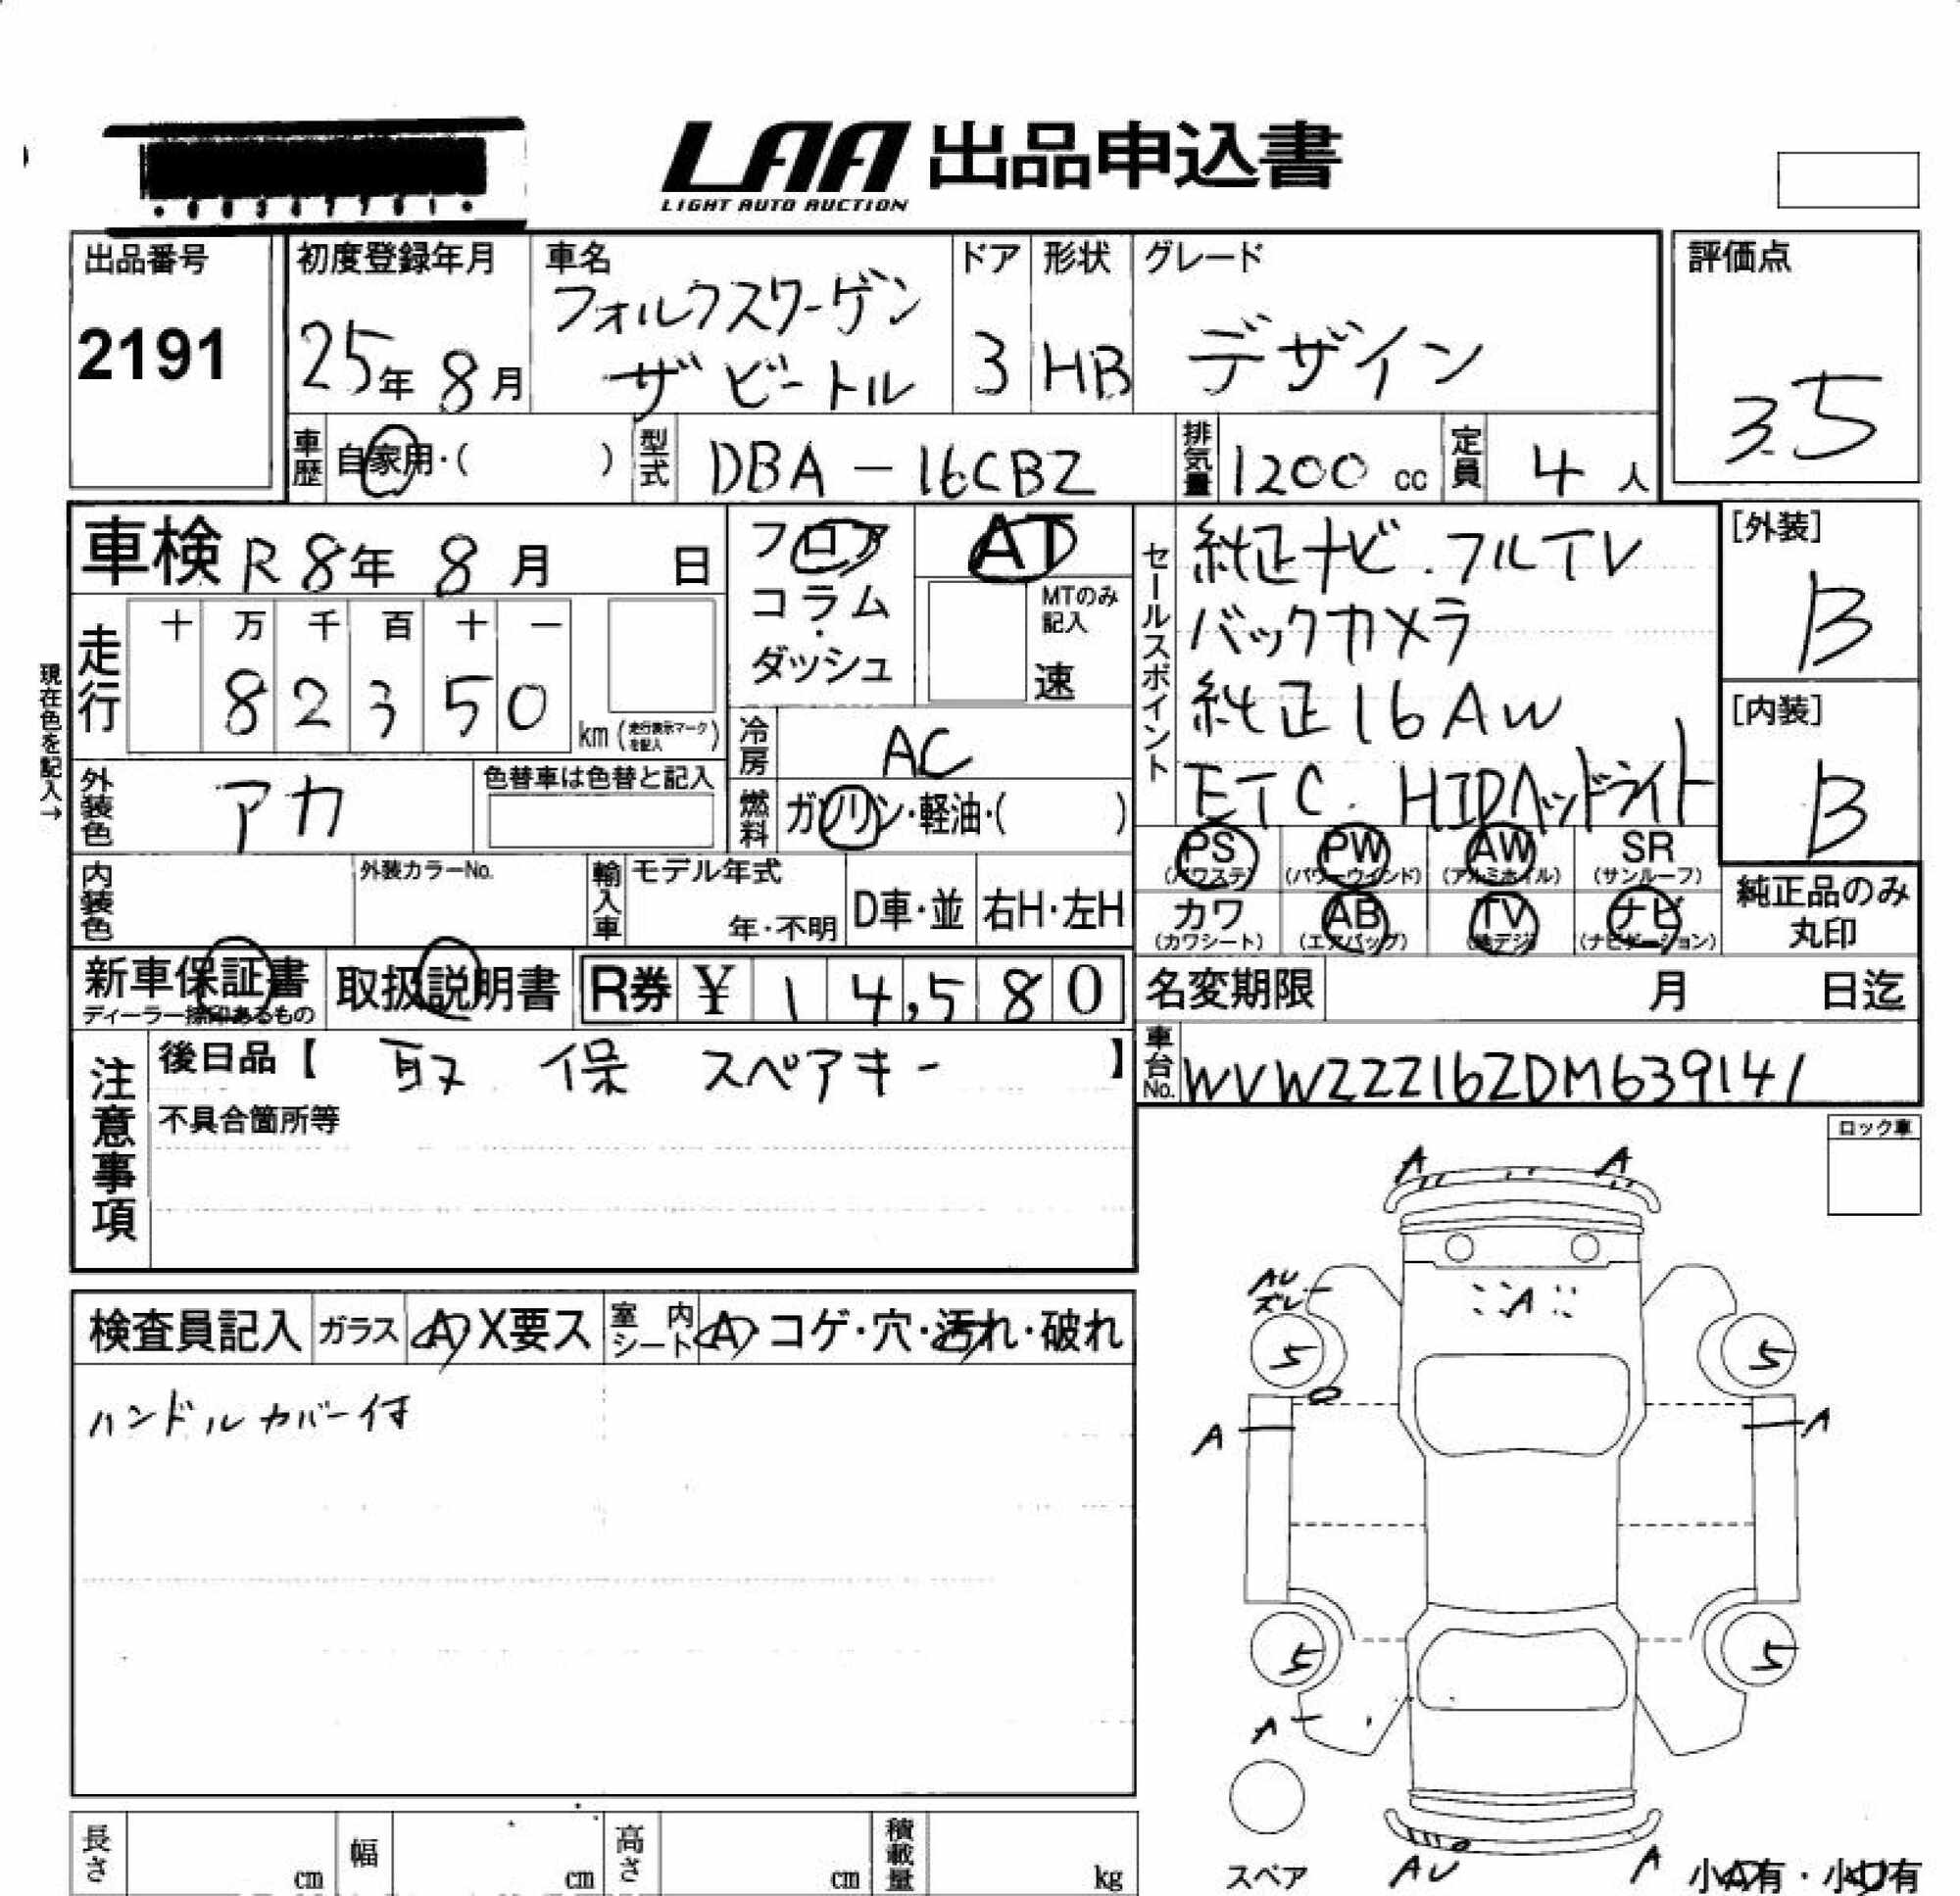 LAA 出品申込書
LIGHT AUTO AUCTION
出品番号
2191
初度登録年月
25年 8月
車名
フォルクスワーゲン
ザ ビートル
ドア
3
形状
HB
グレード
デザイン
評価点
3.5
車歴
自家用・( )
型式
DBA-16CBZ
排気量
1200 cc
定員
4 人
車検 R8年 8月 日
走行
十 万 千 百 十 一
8 2 3 5 0
km (走行表示マークを記入)
現在色を記入→
外装色
アカ
色替車は色替と記入
内装色
外装カラーNo.
フロア
コラム
・
ダッシュ
AT
MTのみ
記入
速
冷房
AC
燃料
ガソリン・軽油・( )
輸入車
モデル年式
年・不明
D車・並
右H・左H
セールスポイント
純正ナビ.フルTV
バックカメラ
純正16AW
ETC. HIDヘッドライト
[外装]
B
[内装]
B
PS
(パワステ)
PW
(パワーウインド)
AW
(アルミホイル)
SR
(サンルーフ)
カワ
(カワシート)
AB
(エアバッグ)
TV
(地デジ)
ナビ
(ナビゲーション)
純正品のみ
丸印
新車保証書
ディーラー捺印あるもの
取扱説明書
R券 ¥ 1 4,5 8 0
名変期限 月 日迄
車台No.
WVWZZZ16ZDM639141
注意事項
後日品【 取 保 スペアキー 】
不具合箇所等
ロック車
検査員記入
ガラス
A X要ス
室内
シート
A・コゲ・穴・汚れ・破れ
ハンドルカバー付
A
A
AU
ズレ
A
5
5
A
A
5
5
A
スペア
AU
A
小A有・小U有
長さ
cm
幅
cm
高さ
cm
積載量
kg